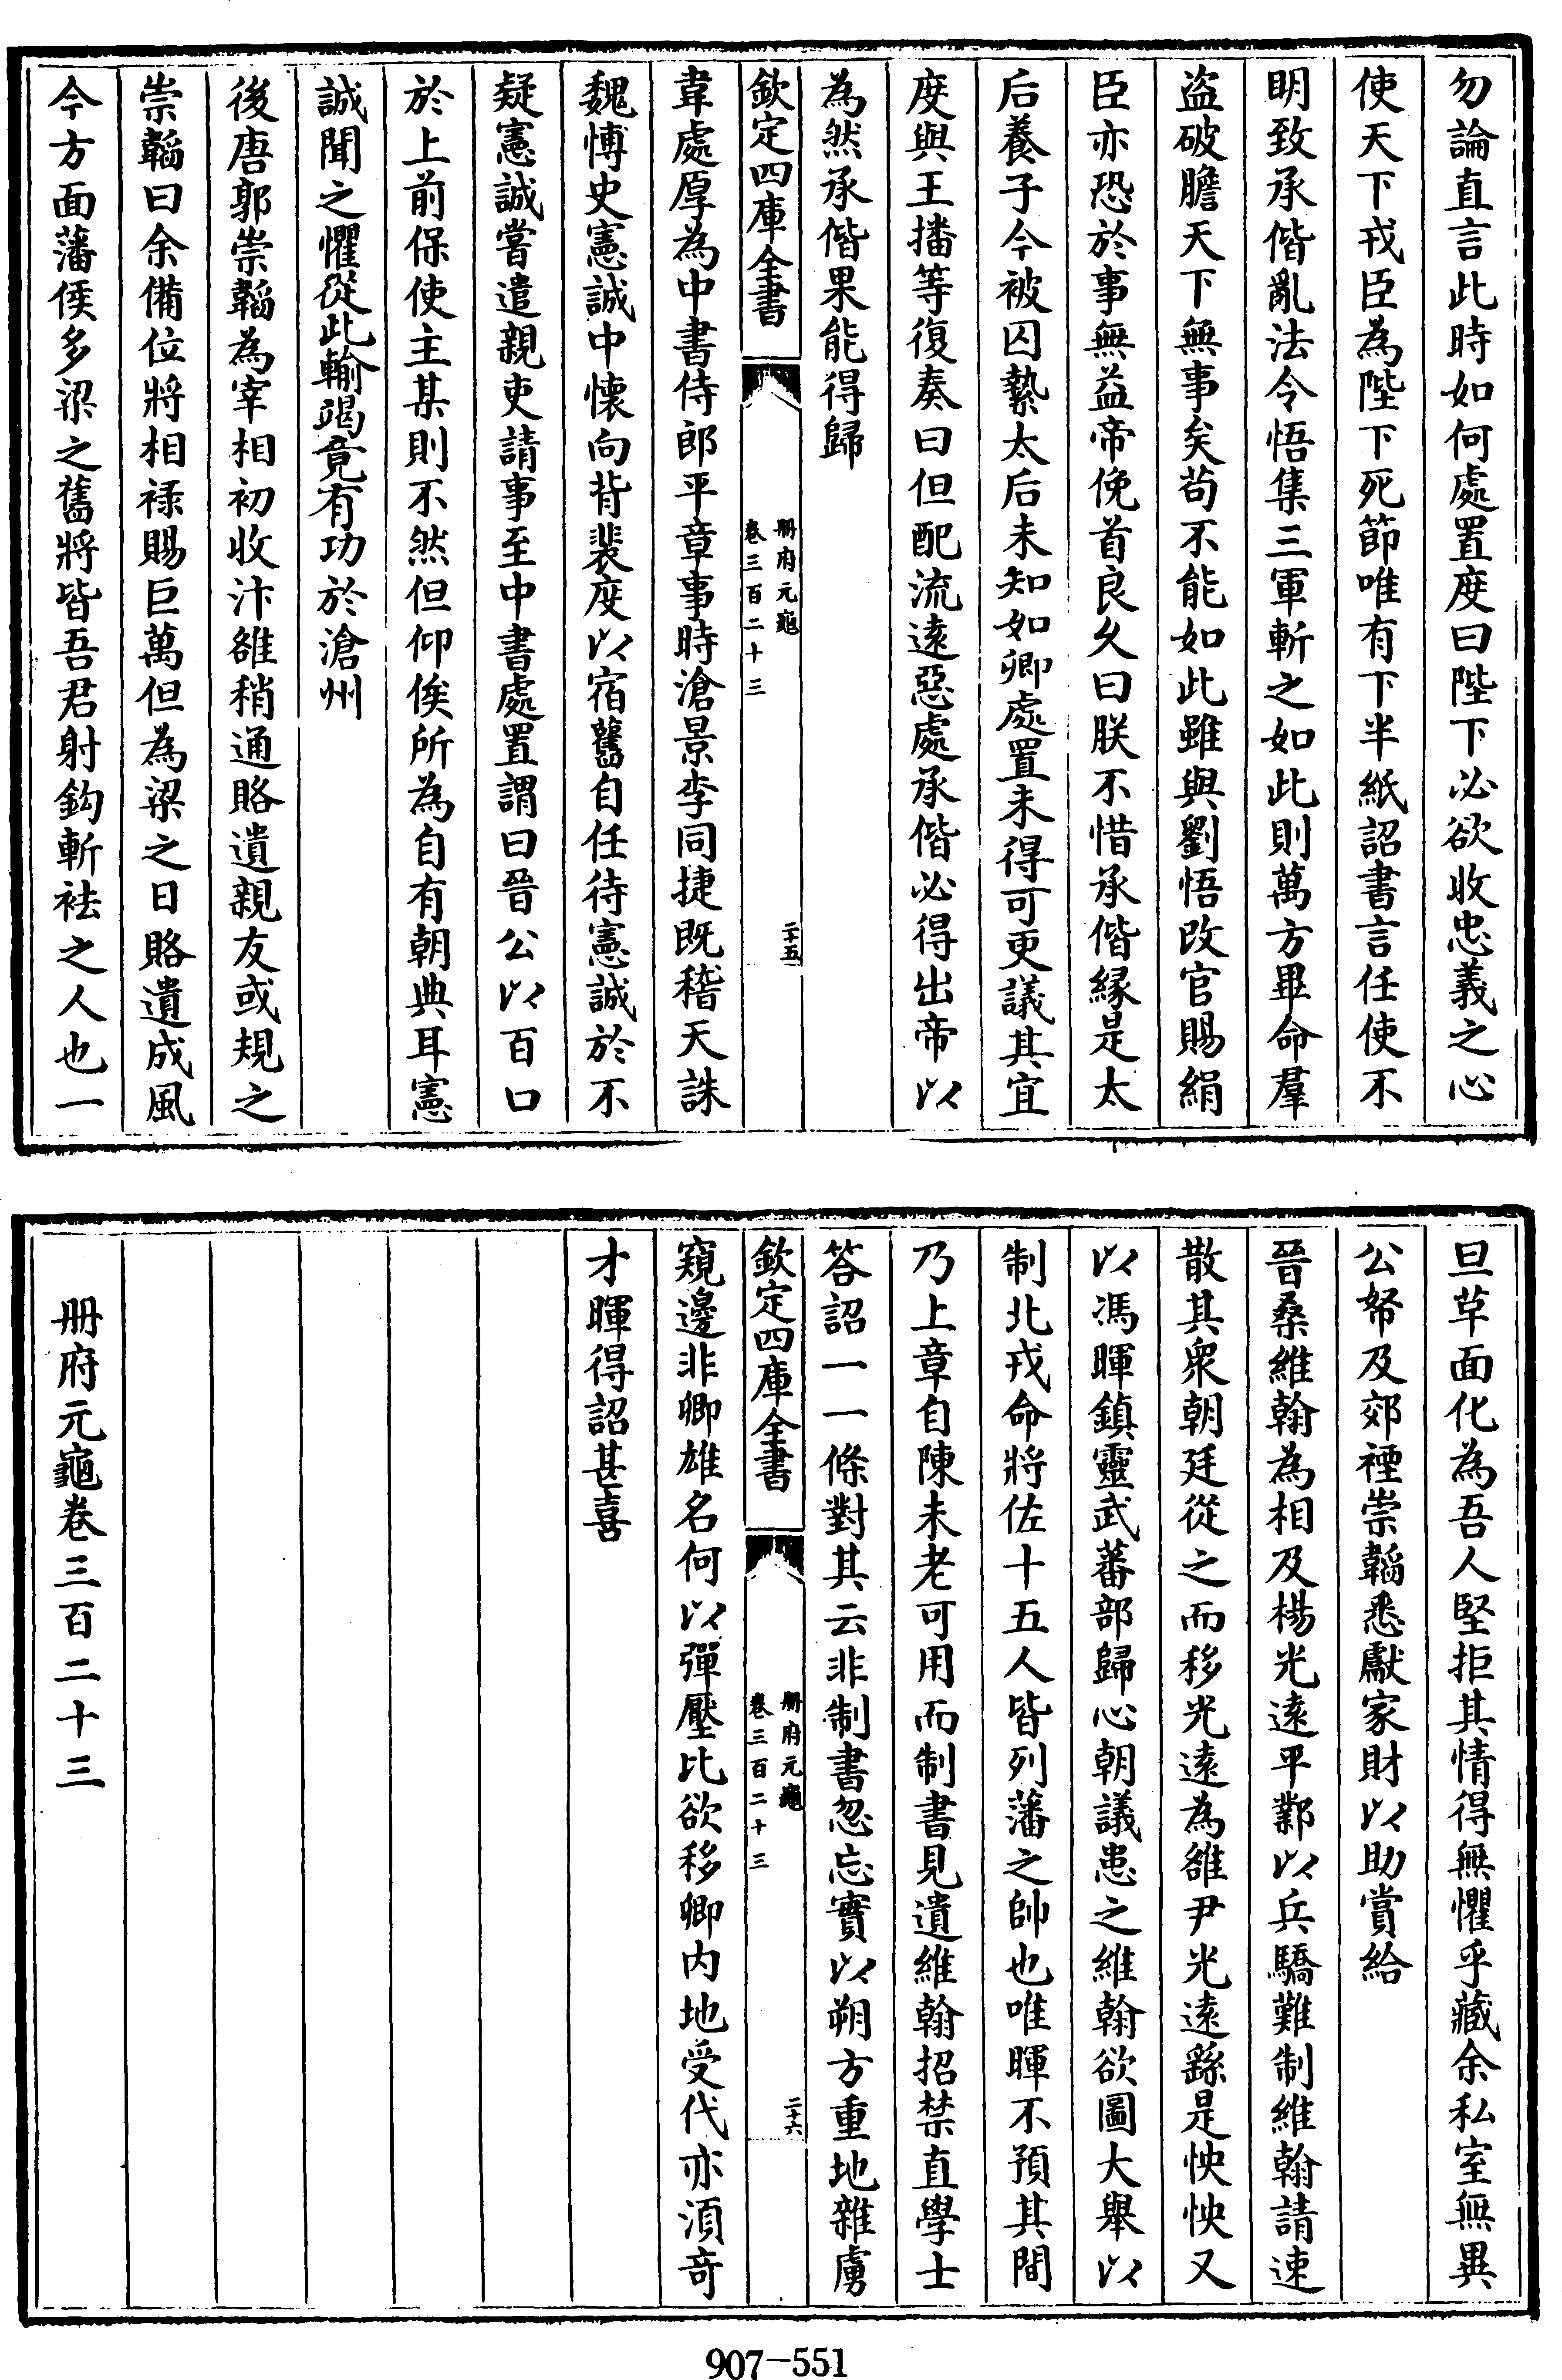 勿論直言此時如何處置度曰陛下必欲收忠義之心
使天下戎臣為陛下死節唯有下半紙詔書言任使不
明致承偕亂法令悟集三軍斬之如此則萬方畢命羣
盜破膽天下無事矣苟不能如此雖與劉悟改官賜絹
臣亦恐於事無益帝俛首良久曰朕不惜承偕縁是太
后養子今被囚縶太后未知如卿處置未得可更議其宜
度與王播等復奏曰但配流逺惡處承偕必得出帝以
為然承偕果能得歸
欽定四庫全書
冊府元龜
卷三百二十三
二十五
韋處厚為中書侍郎平章事時滄景李同捷既稽天誅
魏博史憲誠中懷向背裴度以宿舊自任待憲誠於不
疑憲誠嘗遣親吏請事至中書處置謂曰晉公以百口
於上前保使主某則不然但仰俟所為自有朝典耳憲
誠聞之懼從此輸竭竟有功於滄州
後唐郭崇韜為宰相初收汴雒稍通賂遺親友或規之
崇韜曰余備位將相祿賜巨萬但為梁之日賂遺成風
今方面藩侯多梁之舊將皆吾君射鈎斬袪之人也一
旦草面化為吾人堅拒其情得無懼乎藏余私室無異
公帑及郊禋崇韜悉獻家財以助賞給
晉桑維翰為相及楊光逺平鄴以兵驕難制維翰請速
散其衆朝廷從之而移光逺為雒尹光逺繇是怏怏又
以馮暉鎮靈武蕃部歸心朝議患之維翰欲圖大舉以
制北戎命將佐十五人皆列藩之帥也唯暉不預其間
乃上章自陳未老可用而制書見遺維翰招禁直學士
答詔一一條對其云非制書忽忘實以朔方重地雜虜
欽定四庫全書
冊府元龜
卷三百二十三
二十六
窺邊非卿雄名何以彈壓比欲移卿内地受代亦湏竒
才暉得詔甚喜
冊府元龜卷三百二十三
907-551